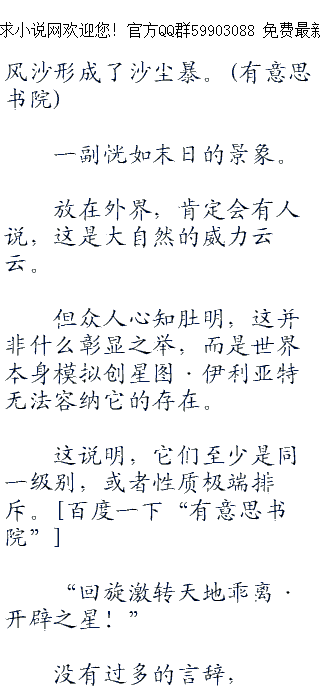 求小说网欢迎您！官方QQ群59903088 免费最新
风沙形成了沙尘暴。(有意思
书院)
一副恍如末日的景象。
放在外界，肯定会有人
说，这是大自然的威力云
云。
但众人心知肚明，这并
非什么彰显之举，而是世界
本身模拟创星图·伊利亚特
无法容纳它的存在。
这说明，它们至少是同
一级别，或者性质极端排
斥。[百度一下“有意思书
院”]
“回旋激转天地乖离·
开辟之星！”
没有过多的言辞，